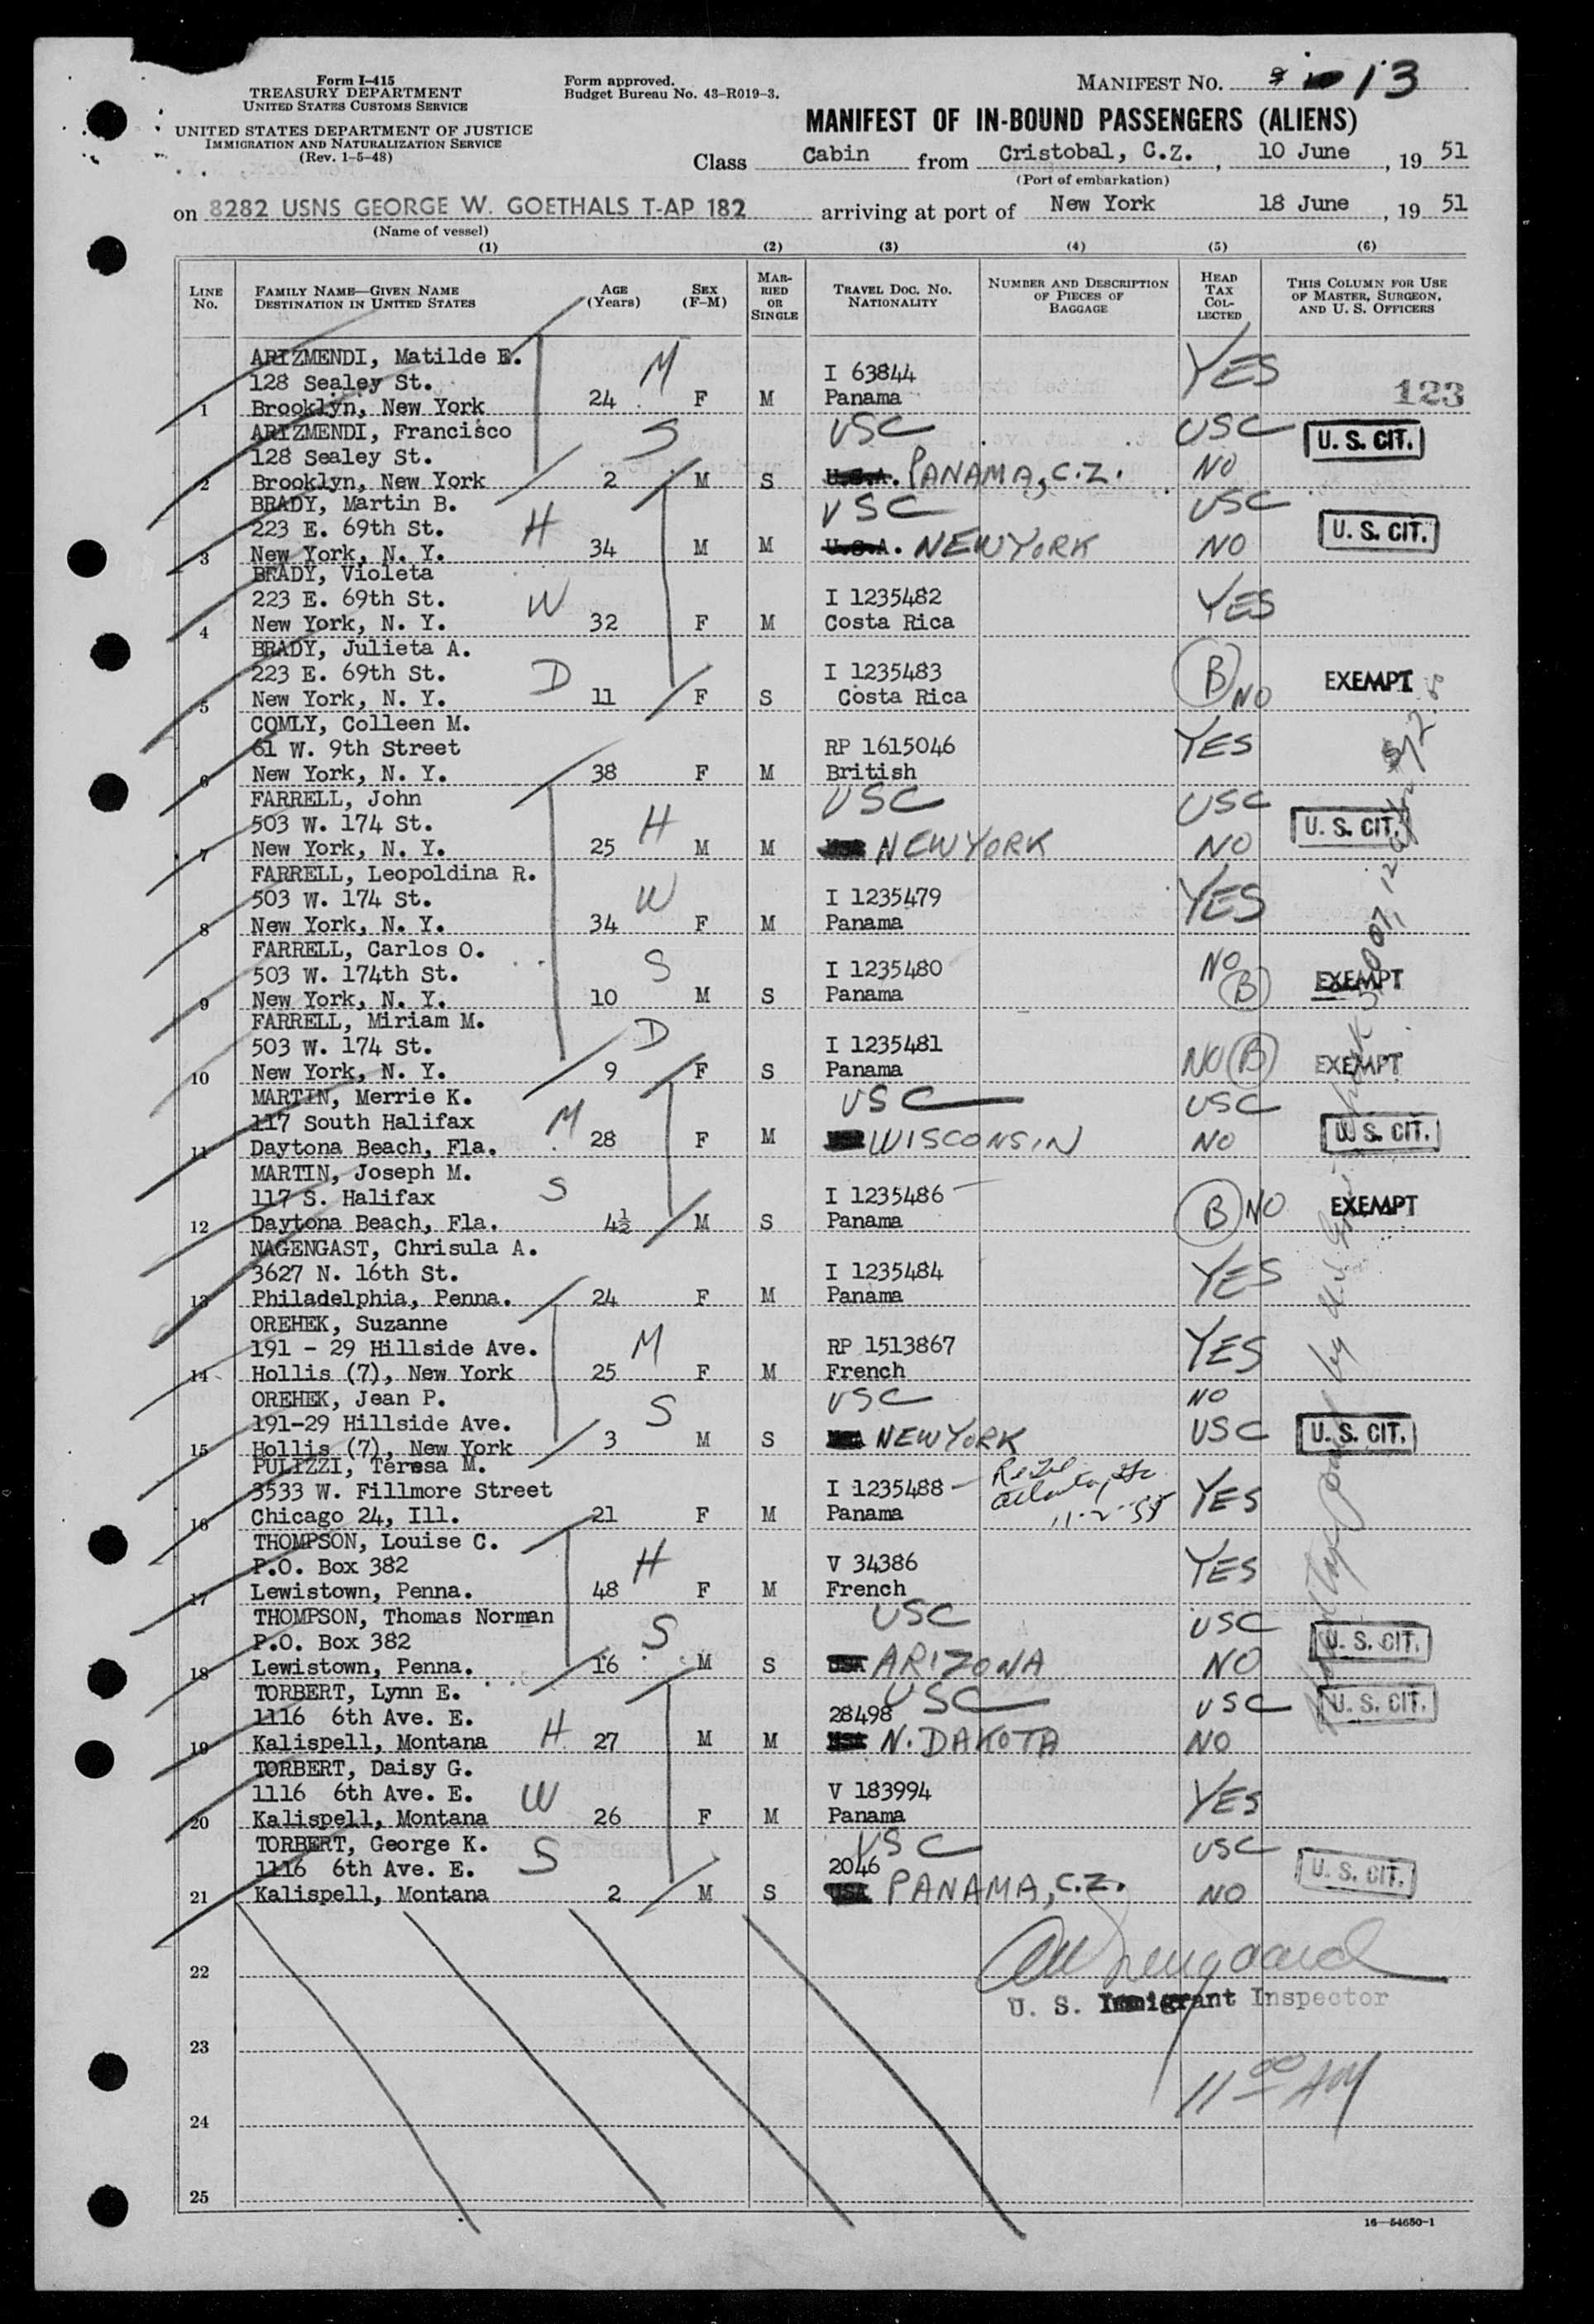 Form I-415
TREASURY DEPARTMENT
UNITED STATES CUSTOMS SERVICE
UNITED STATES DEPARTMENT OF JUSTICE
IMMIGRATION AND NATURALIZATION SERVICE
(Rev. 1-5-48)
Form approved.
Budget Bureau No. 43-R019-3.
MANIFEST NO. 13
MANIFEST OF IN-BOUND PASSENGERS (ALIENS)
Class Cabin from Cristobal, C.Z., 10 June, 19 51
(Port of embarkation)
on 8282 USNS GEORGE W. GOETHALS T-AP 182 arriving at port of New York 18 June, 19 51
(Name of vessel)
(1) (2) (3) (4) (5) (6)
LINE No. FAMILY NAME—GIVEN NAME DESTINATION IN UNITED STATES AGE (Years) SEX (F-M) MARRIED OR SINGLE TRAVEL DOC. NO. NATIONALITY NUMBER AND DESCRIPTION OF PIECES OF BAGGAGE HEAD TAX COLLECTED THIS COLUMN FOR USE OF MASTER, SURGEON, AND U. S. OFFICERS
ARIZMENDI, Matilde E. M YES
128 Sealey St. I 63844
1 Brooklyn, New York 24 F M Panama 123
ARIZMENDI, Francisco S USC USC U. S. CIT.
128 Sealey St.
2 Brooklyn, New York 2 M S U.S.A. PANAMA, C.Z. NO
BRADY, Martin B. USC USC
223 E. 69th St. H U. S. CIT.
3 New York, N. Y. 34 M M U.S.A. NEW YORK NO
BRADY, Violeta
223 E. 69th St. W I 1235482 YES
4 New York, N. Y. 32 F M Costa Rica
BRADY, Julieta A.
223 E. 69th St. D I 1235483 B EXEMPT
5 New York, N. Y. 11 F S Costa Rica NO
COMLY, Colleen M.
61 W. 9th Street RP 1615046 YES
6 New York, N. Y. 38 F M British
FARRELL, John USC USC
503 W. 174 St. H U. S. CIT.
7 New York, N. Y. 25 M M NEW YORK NO
FARRELL, Leopoldina R.
503 W. 174 St. W I 1235479 YES
8 New York, N. Y. 34 F M Panama
FARRELL, Carlos O.
503 W. 174th St. S I 1235480 NO EXEMPT
9 New York, N. Y. 10 M S Panama B
FARRELL, Miriam M. D
503 W. 174 St. I 1235481 NO B EXEMPT
10 New York, N. Y. 9 F S Panama
MARTIN, Merrie K. USC USC
117 South Halifax M U. S. CIT.
11 Daytona Beach, Fla. 28 F M WISCONSIN NO
MARTIN, Joseph M.
117 S. Halifax S I 1235486 B NO EXEMPT
12 Daytona Beach, Fla. 4½ M S Panama
NAGENGAST, Chrisula A.
3627 N. 16th St. I 1235484 YES
13 Philadelphia, Penna. 24 F M Panama
OREHEK, Suzanne
191 - 29 Hillside Ave. M RP 1513867 YES
14 Hollis (7), New York 25 F M French
OREHEK, Jean P. USC NO
191-29 Hillside Ave. S USC U. S. CIT.
15 Hollis (7), New York 3 M S NEW YORK
PULIZZI, Teresa M.
3533 W. Fillmore Street I 1235488 Atlanta, Ga YES
16 Chicago 24, Ill. 21 F M Panama 11-2-55
THOMPSON, Louise C.
P.O. Box 382 H V 34386 YES
17 Lewistown, Penna. 48 F M French
THOMPSON, Thomas Norman USC USC
P.O. Box 382 S U. S. CIT.
18 Lewistown, Penna. 16 M S USA ARIZONA NO
TORBERT, Lynn E. USC USC U. S. CIT.
1116 6th Ave. E. 28498
19 Kalispell, Montana H 27 M M N. DAKOTA NO
TORBERT, Daisy G.
1116 6th Ave. E. W V 183994 YES
20 Kalispell, Montana 26 F M Panama
TORBERT, George K. USC USC
1116 6th Ave. E. S 2046 U. S. CIT.
21 Kalispell, Montana 2 M S USA PANAMA, C.Z. NO
22
U. S. Immigrant Inspector
23
11 00 AM
24
25
16—54650-1